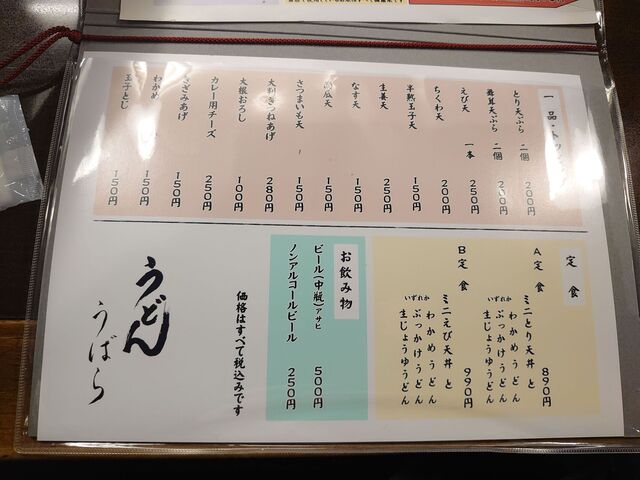 一品・トッ
とり天ぷら 二個 200円
舞茸天ぷら 二個 200円
えび天 一本 250円
ちくわ天 200円
半熟玉子天 150円
生姜天 250円
なす天 150円
南瓜天 150円
さつまいも天 150円
大判きつねあげ 280円
大根おろし 100円
カレー用チーズ 250円
きざみあげ 150円
わかめ 150円
玉子とじ 150円
定食
A定食
ミニとり天丼 と 890円
いずれか
わかめうどん
ぶっかけうどん
生じょうゆうどん
B定食
ミニえび天丼 と 990円
いずれか
わかめうどん
ぶっかけうどん
生じょうゆうどん
お飲み物
ビール(中瓶)アサヒ 500円
ノンアルコールビール 250円
価格はすべて税込みです
うどん
うばら